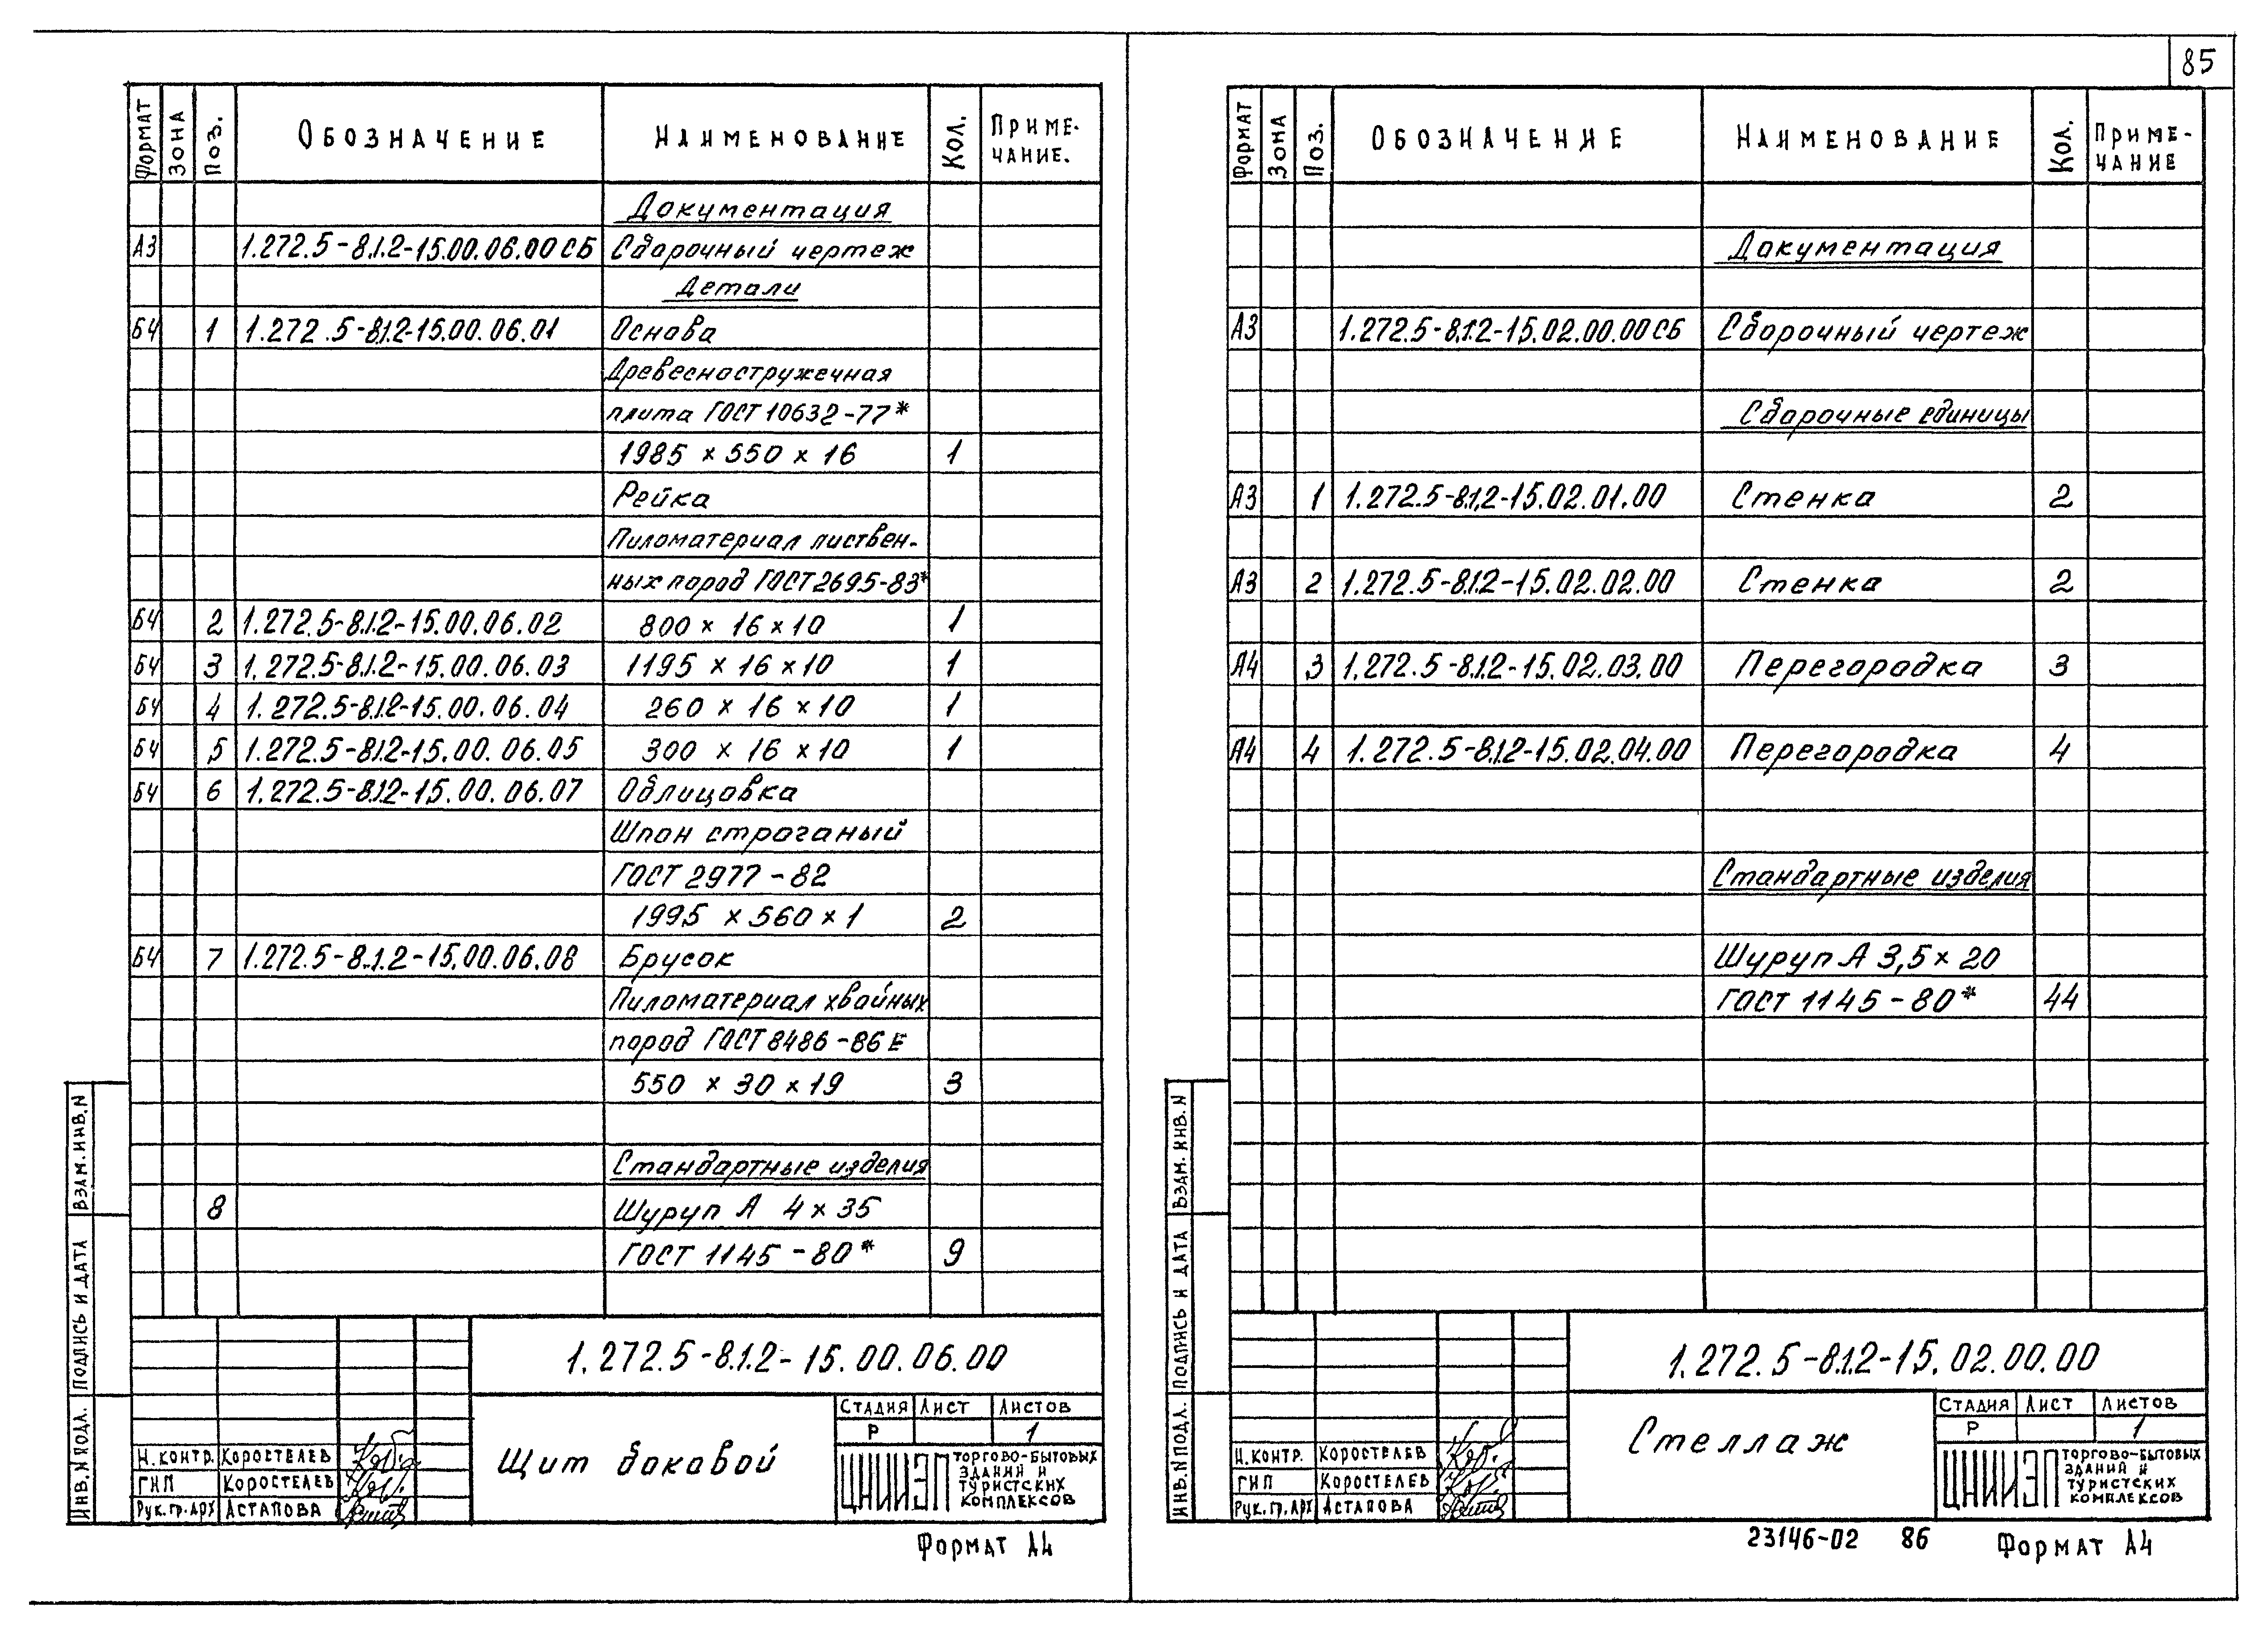 85
Формат Зона Поз. Обозначение Наименование Кол. Приме-
чание.
Документация
А3 1.272.5-8.1.2-15.00.06.00СБ Сборочный чертеж
Детали
БЧ 1 1.272.5-8.1.2-15.00.06.01 Основа
Древесностружечная
плита ГОСТ 10632-77*
1985 × 550 × 16 1
Рейка
Пиломатериал листвен-
ных пород ГОСТ 2695-83*
БЧ 2 1.272.5-8.1.2-15.00.06.02 800 × 16 × 10 1
БЧ 3 1.272.5-8.1.2-15.00.06.03 1195 × 16 × 10 1
БЧ 4 1.272.5-8.1.2-15.00.06.04 260 × 16 × 10 1
БЧ 5 1.272.5-8.1.2-15.00.06.05 300 × 16 × 10 1
БЧ 6 1.272.5-8.1.2-15.00.06.07 Облицовка
Шпон строганый
ГОСТ 2977-82
1995 × 560 × 1 2
БЧ 7 1.272.5-8.1.2-15.00.06.08 Брусок
Пиломатериал хвойных
пород ГОСТ 8486-86Е
550 × 30 × 19 3
Стандартные изделия
8 Шуруп А 4 × 35
ГОСТ 1145-80* 9
Инв.N подл. Подпись и дата Взам.инв.N
1.272.5-8.1.2-15.00.06.00
Щит боковой
Стадия Лист Листов
Р 1
Н.контр. Коростелев
ГИП Коростелев
Рук.гр.арх Астапова
ЦНИИЭП торгово-бытовых
зданий и
туристских
комплексов
Формат А4
Формат Зона Поз. Обозначение Наименование Кол. Приме-
чание
Документация
А3 1.272.5-8.1.2-15.02.00.00СБ Сборочный чертеж
Сборочные единицы
А3 1 1.272.5-8.1.2-15.02.01.00 Стенка 2
А3 2 1.272.5-8.1.2-15.02.02.00 Стенка 2
А4 3 1.272.5-8.1.2-15.02.03.00 Перегородка 3
А4 4 1.272.5-8.1.2-15.02.04.00 Перегородка 4
Стандартные изделия
Шуруп А 3,5 × 20
ГОСТ 1145-80* 44
Инв.N подл. Подпись и дата Взам.инв.N
1.272.5-8.1.2-15.02.00.00
Стеллаж
Стадия Лист Листов
Р 1
Н.контр. Коростелев
ГИП Коростелев
Рук.гр.арх Астапова
ЦНИИЭП торгово-бытовых
зданий и
туристских
комплексов
23146-02 86 Формат А4